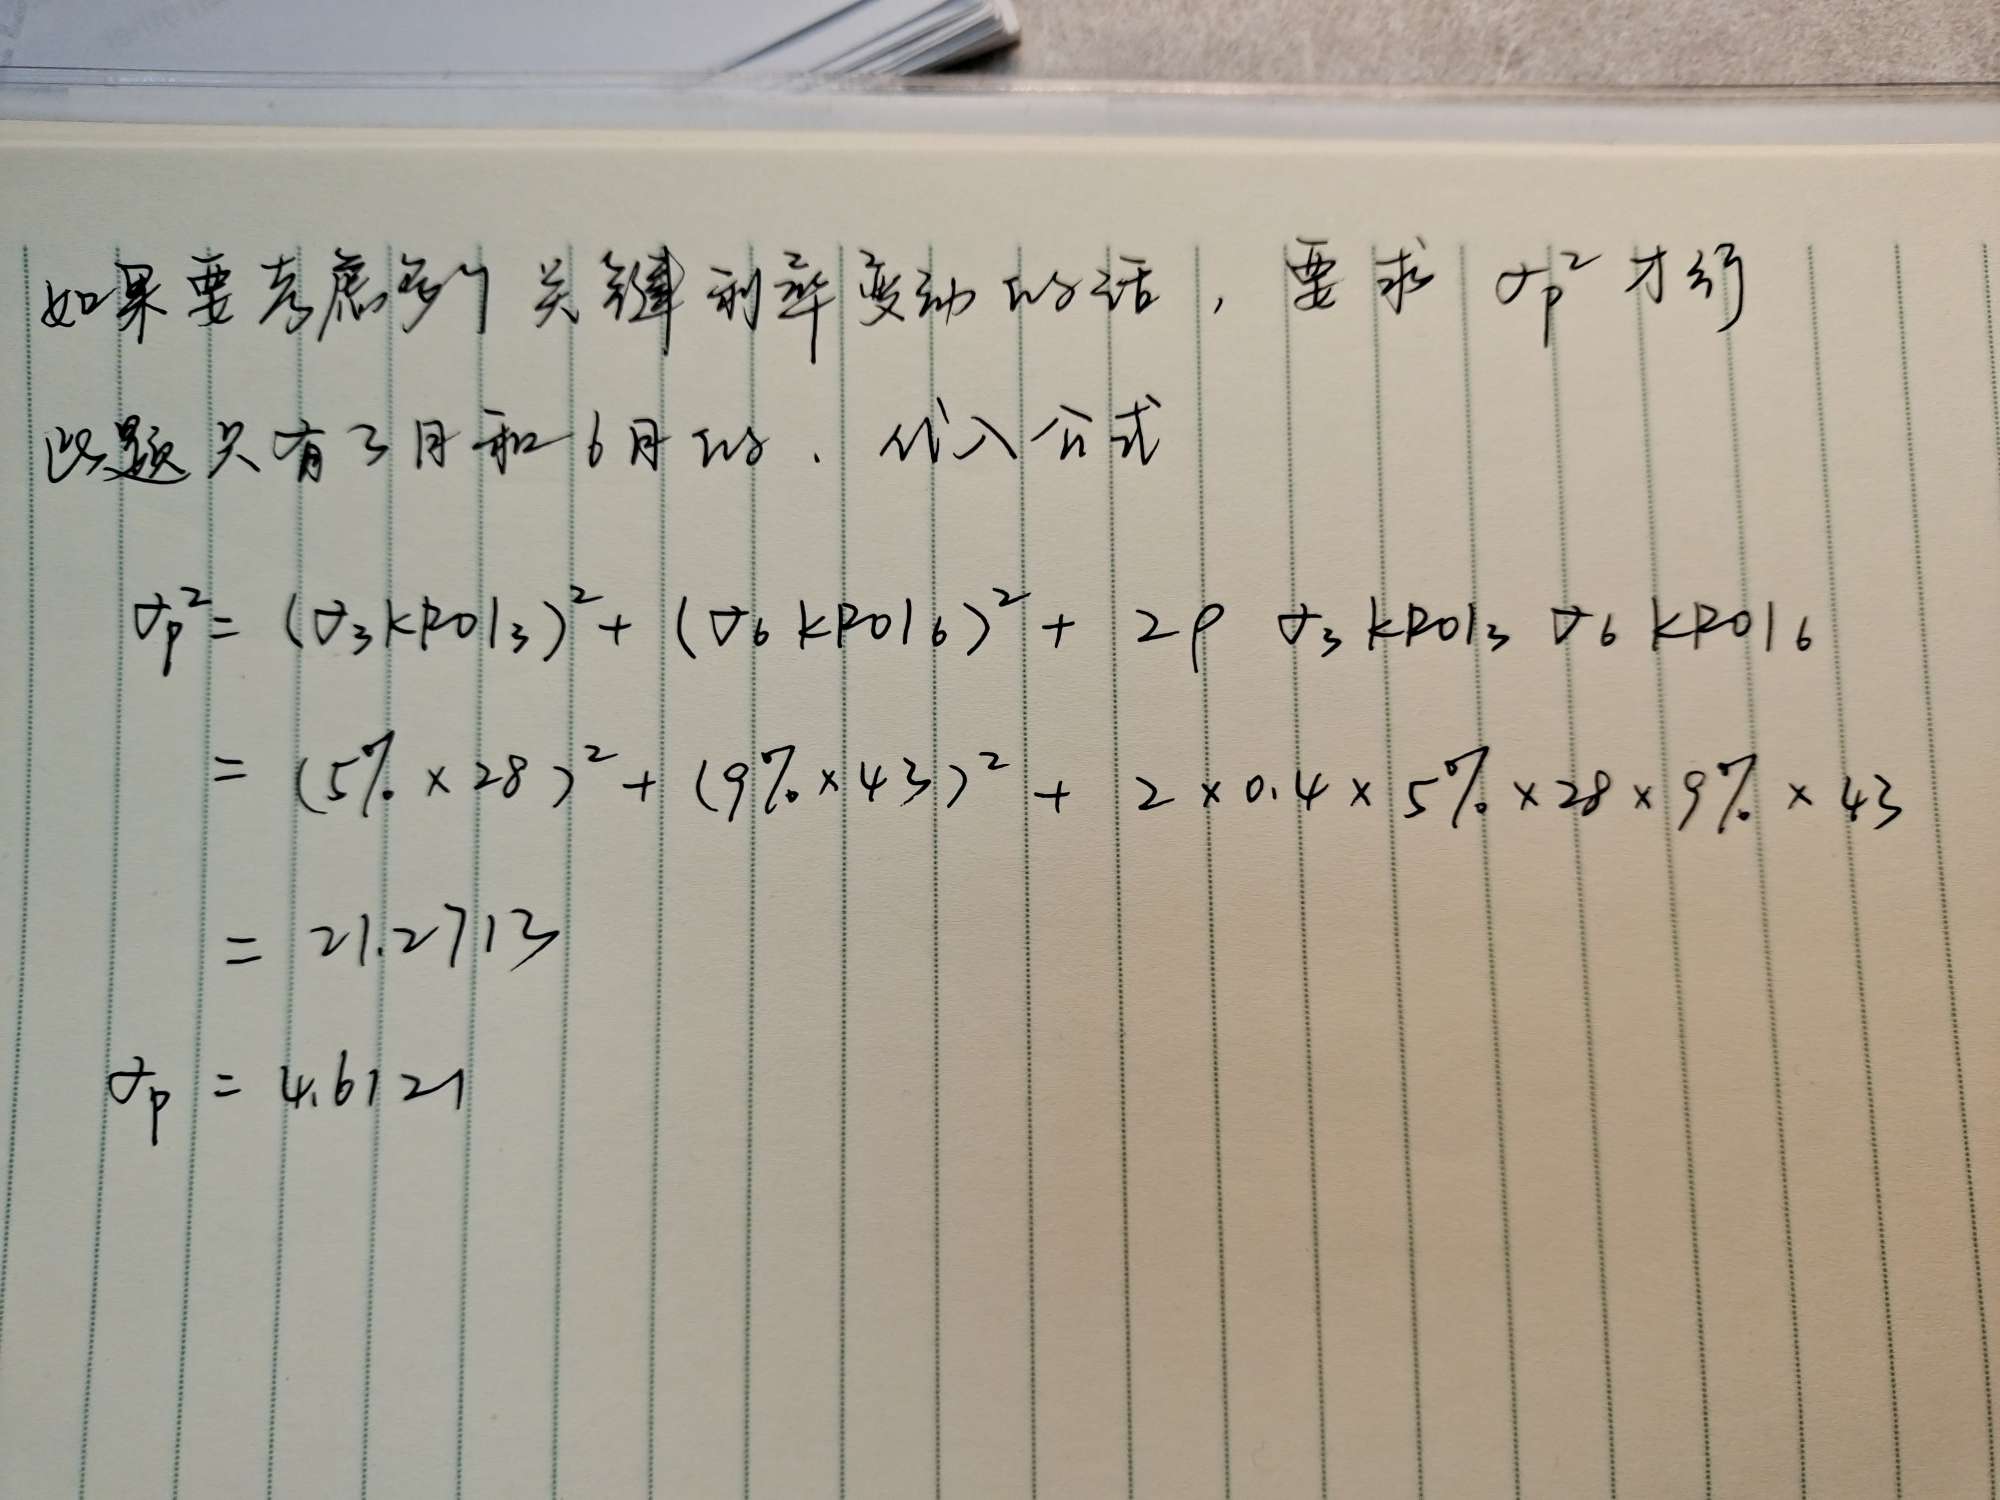 如果要考虑多个关键利率变动的话，要求 σp² 才行
此题只有3月和6月的．代入公式
σp² = (σ3 KR013)² + (σ6 KR016)² + 2ρ σ3 KR013 σ6 KR016
= (5% × 28)² + (9% × 43)² + 2 × 0.4 × 5% × 28 × 9% × 43
= 21.2713
σp = 4.6121